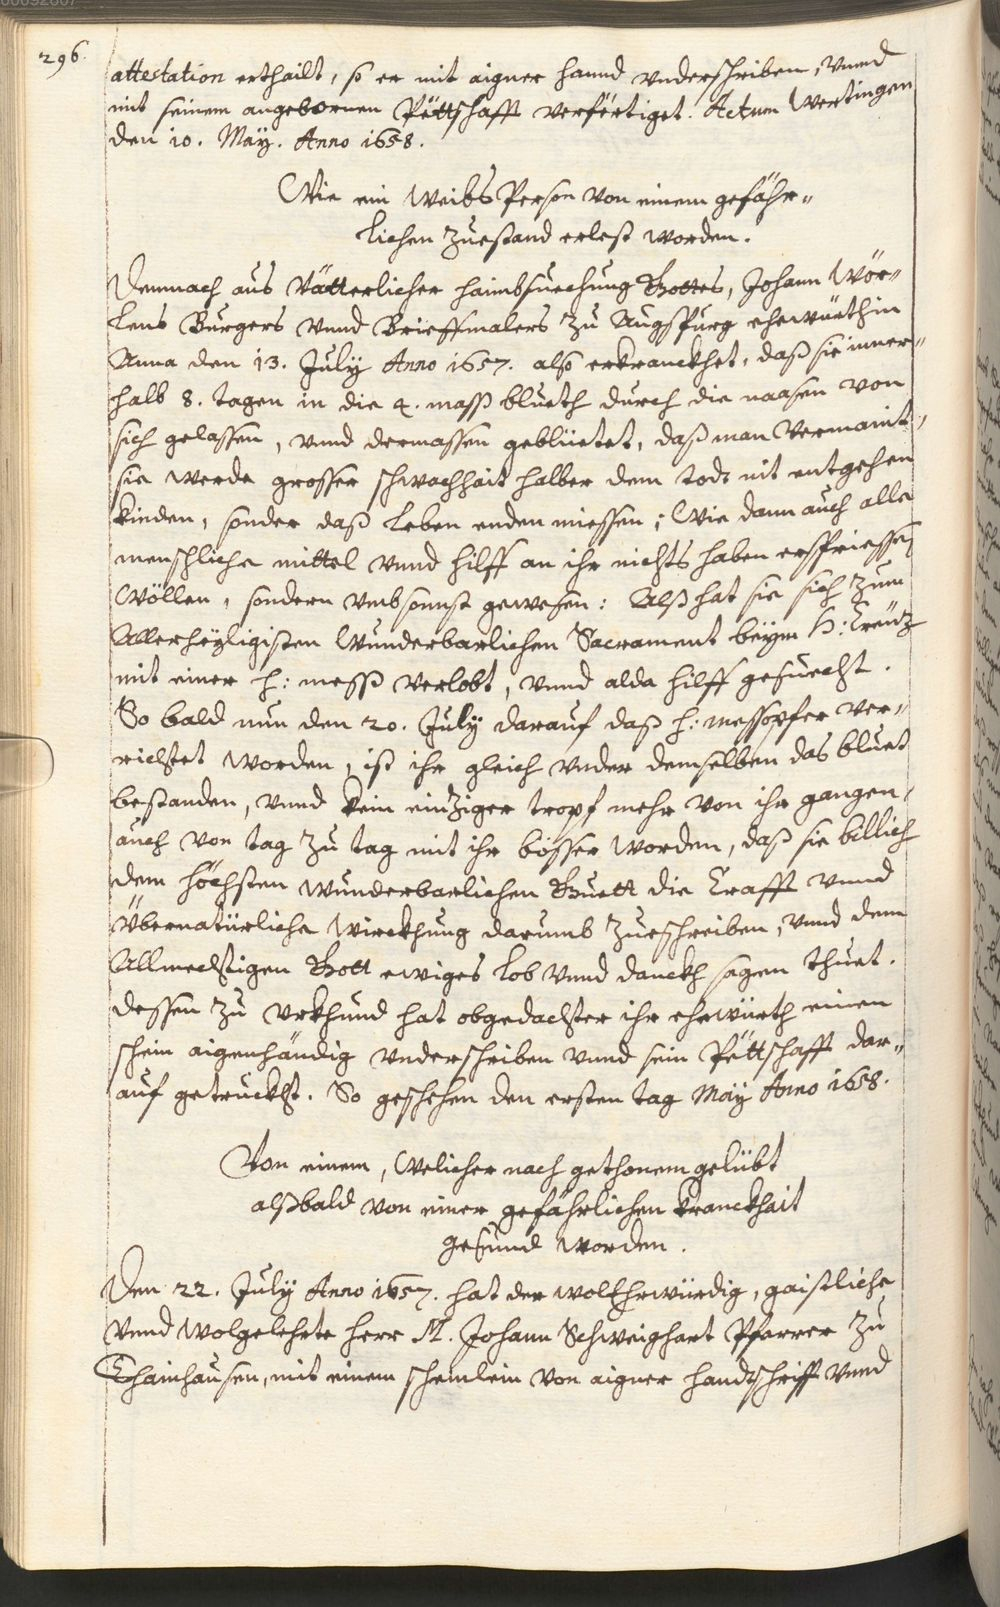 296.
attestation erthailt, so er mit aigner hannd vnderschriben, vnnd
mit seinem angebornen Pëttschafft verfërtiget. Actum Wertingen
den 10. Maÿ. Anno 1658.
Wie ein Weibs Person von einem gefähr„
lichen Zuestand erlest worden.
Demnach aus Vätterlicher haimbsuechung Gottes, Johann Wör„
lens Burgers vnnd Brieffmalers zu Augspurg ehewürthin
Anna den 13. Julÿ Anno 1657. also erkranckhet, daß sie inner„
halb 8. tagen in die 4. mass blueth durch die naasen von
sich gelassen, vnnd dermassen geblüetet, daß man vermaint,
sie werde grosser schwachhait halber dem todt nit entgehen
kinden, sonder daß leben enden miessen; Wie dann auch alle
menschliche mittel vnnd hilff an ihr nichts haben erspriessen
wöllen, sondern vmbsonnst gewesen: Alß hat sie sich zum
Allerheÿligisten Wunderbarlichen Sacrament beÿm H: Creütz
mit einer h: mess verlobt, vnnd alda hilff gesuecht.
So bald nun den 20. Julÿ darauf daß h: messopfer ver„
richtet worden, ist ihr gleich vnder demselben das bluet
bestanden, vnnd kein einziger tropf mehr von ihr gangen,
auch von tag zu tag mit ihr bösser worden, daß sie billich
dem höchsten wunderbarlichen Guett die Crafft vnnd
Übernatürliche Wirckhung darumb zueschreiben, vnnd dem
Allmechtigen Gott ewiges lob vnnd danckh sagen thuet.
dessen zu vrkhund hat obgedachter ihr ehewürth einen
schein aigenhändig vnderschriben vnnd sein Pëttschafft dar„
auf getruckht. So geschehen den ersten tag Maÿ Anno 1658.
Von einem, Welicher nach gethonem gelübt
alßbald von einer gefährlichen kranckhait
gesund worden.
Den 22. Julÿ Anno 1657. hat der WolEhrwürdig, gaistliche
vnnd wolgelehrte herr M. Johann Schweighart Pfarrer zu
Thainhausen, mit einem scheinlein von aigner handtschrifft vnnd